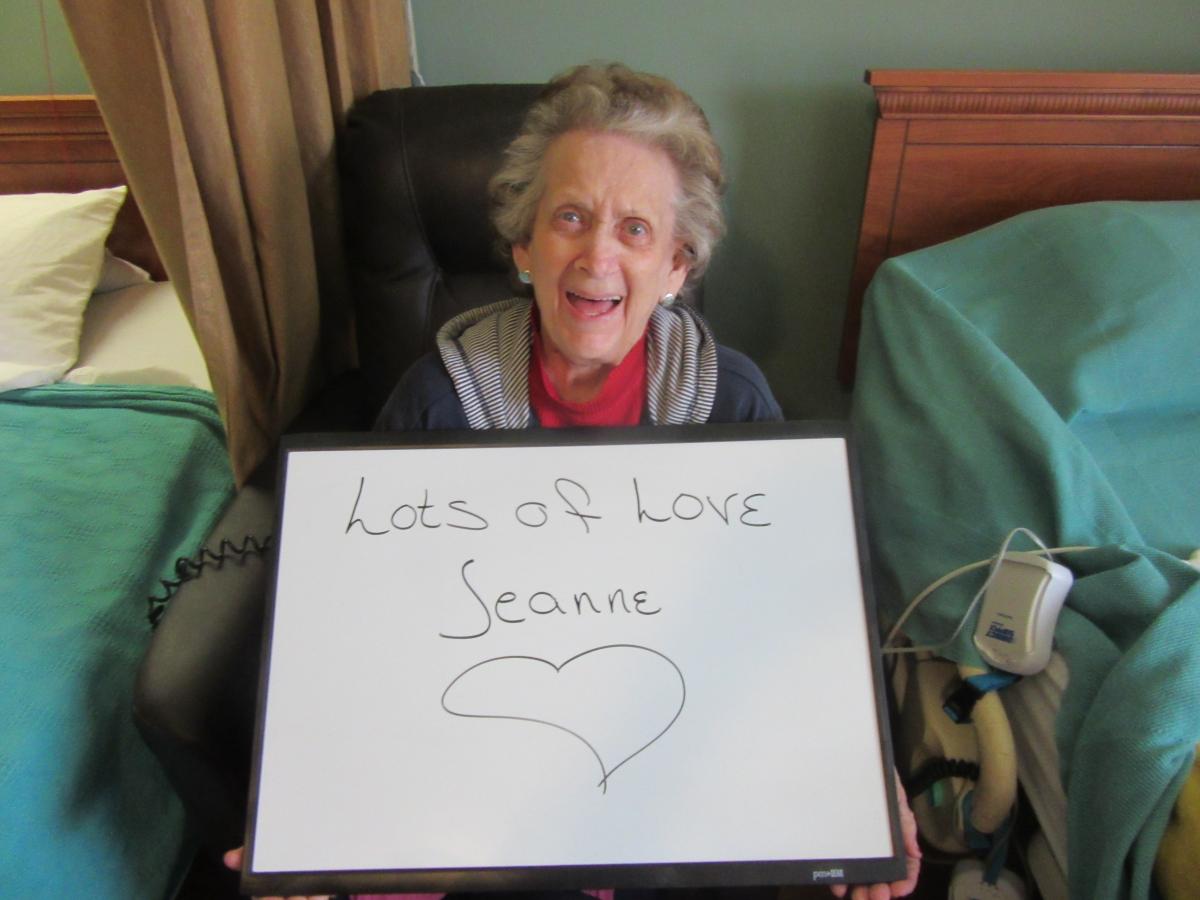 Lots of Love
Jeanne